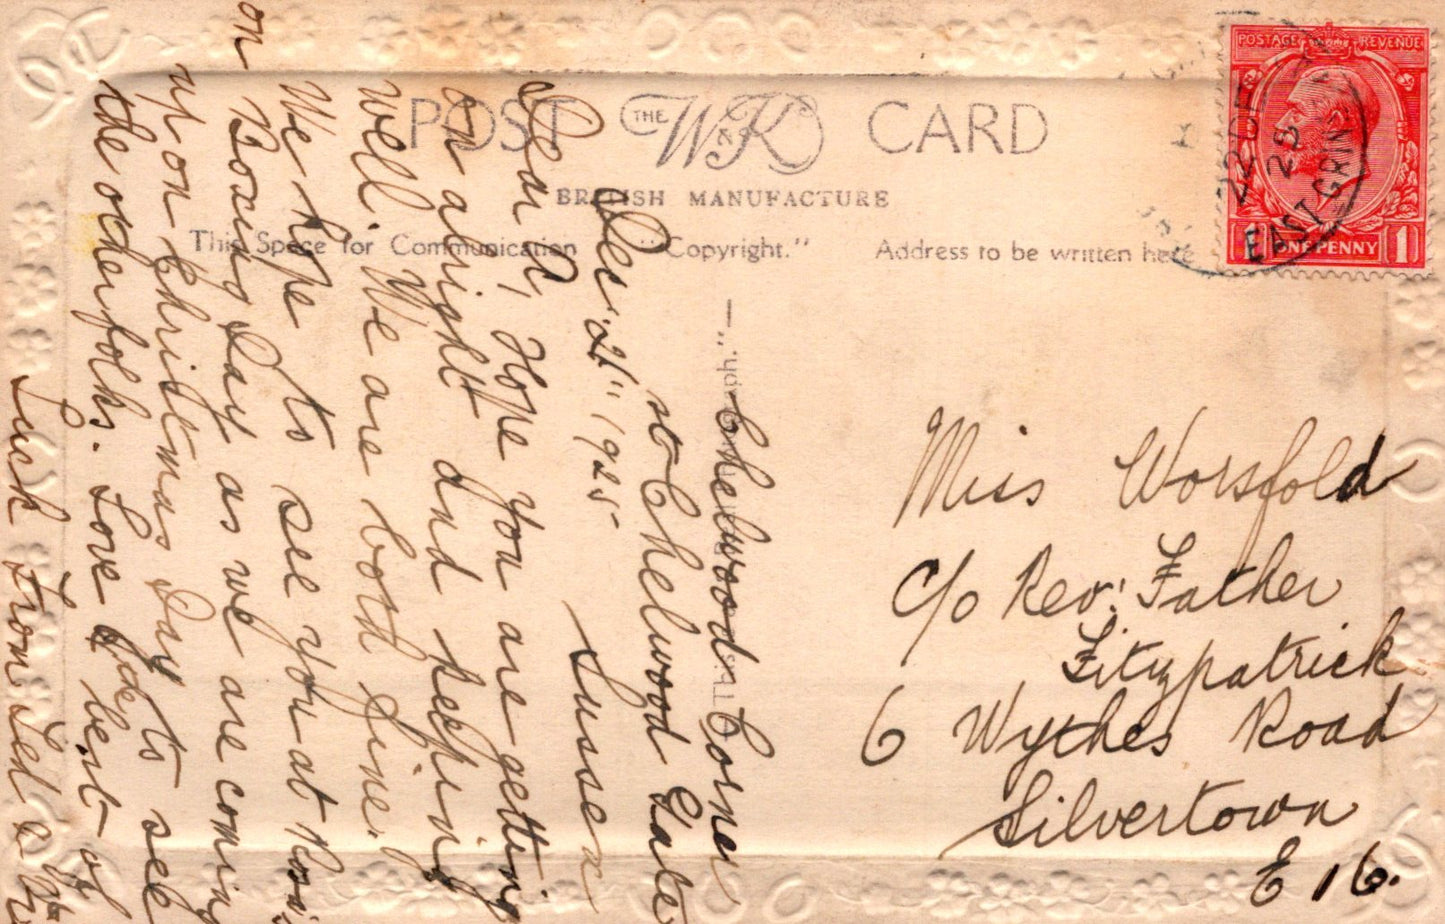 POST THE W&K CARD
BRITISH MANUFACTURE
This Space for Communication "Copyright." Address to be written here
POSTAGE REVENUE
1 ONE PENNY 1
EAST GRIN
22 DE
25
Chelwood Corner
Chelwood Gate
Sussex
Dec. 21" 1925
Dear D, Hope you are getting
on alright and keeping
well. We are both fine.
We hope to see you at
on Boxing Day as we are coming
upon Christmas Day to see
the otherfolks. Love & de bent of
Luck from Led &
Miss Worsfold
c/o Rev: Father
Fitzpatrick
6 Wythes Road
Silvertown
E 16.